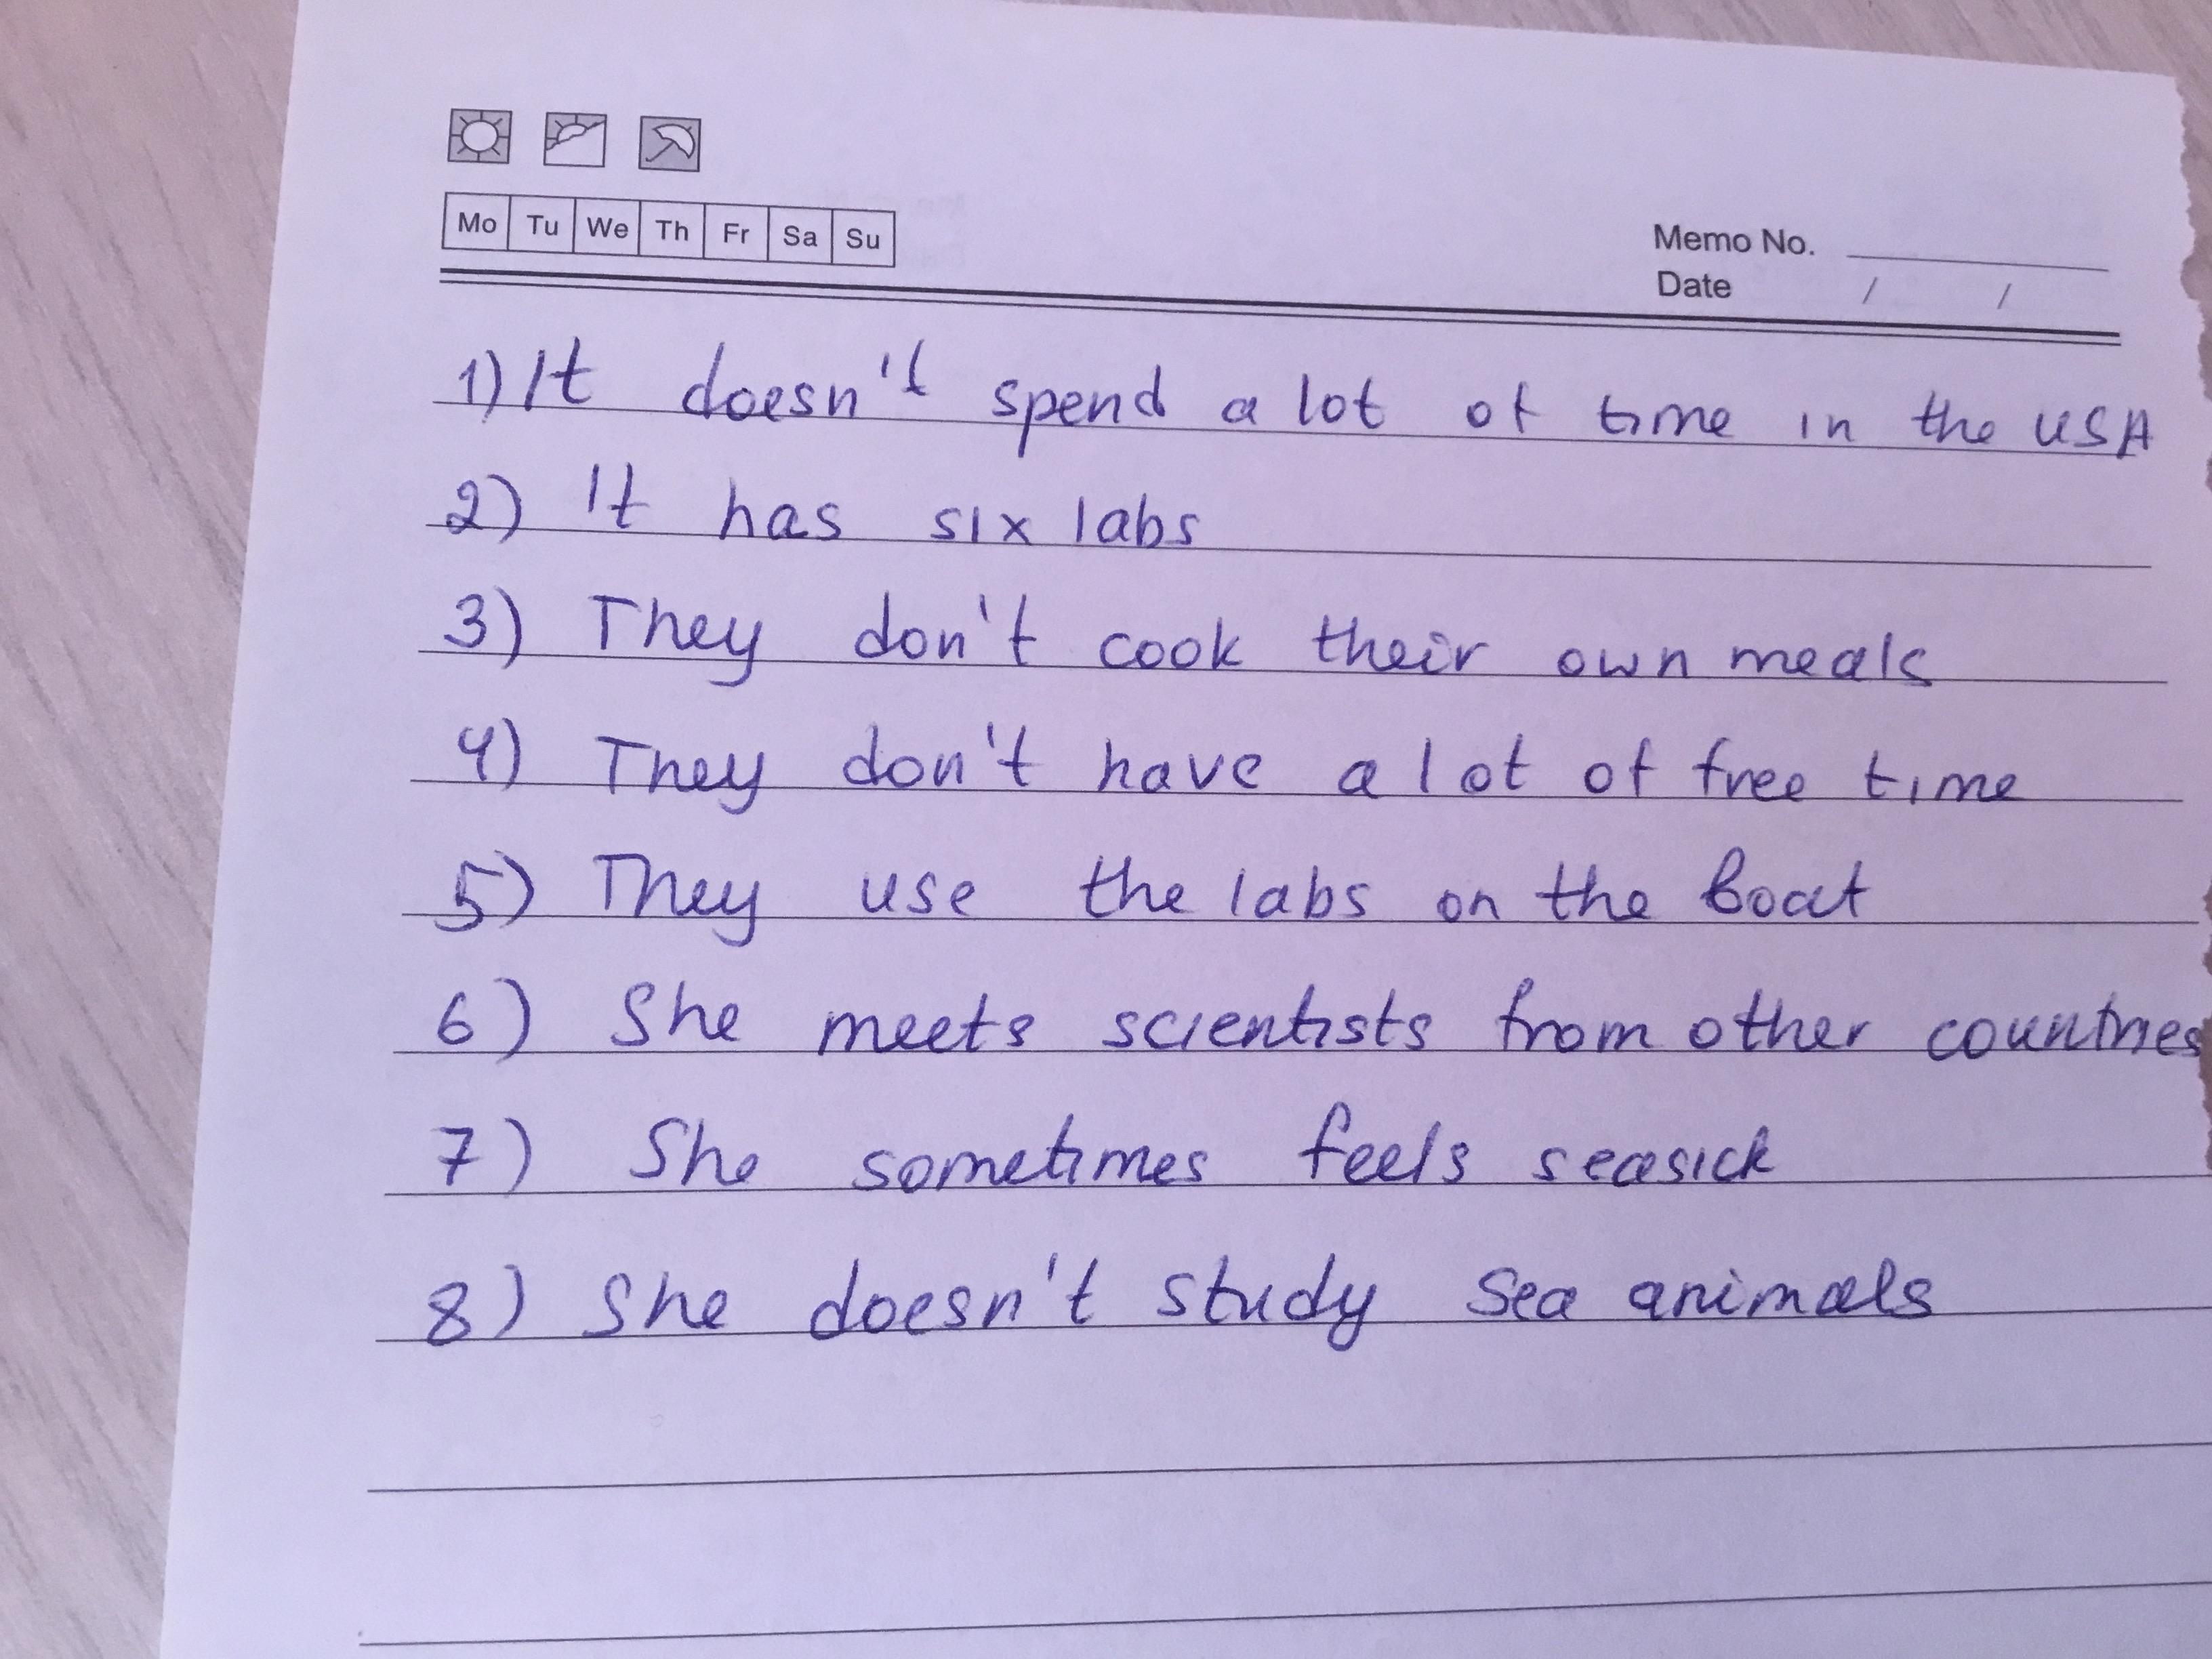 Mo Tu We Th Fr Sa Su
Memo No.
Date / /
1) It doesn't spend a lot of time in the USA
2) It has six labs
3) They don't cook their own meals
4) They don't have a lot of free time
5) They use the labs on the boat
6) She meets scientists from other countries
7) She sometimes feels seasick
8) She doesn't study sea animals